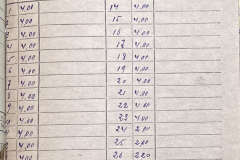 4.00 14 4.00
4.00 15 4.00
4.00 16 4.00
4.00 17 4.00
4 4.00 18 4.00
5 4.00 19 4.00
6 4.00 20 4.00
7 4.00 21 4.00
8 4.00 22 4.00
9 4.00 23 4.00
4.00 24 2.00
4.00 25 2.00
4.00 26 2.20